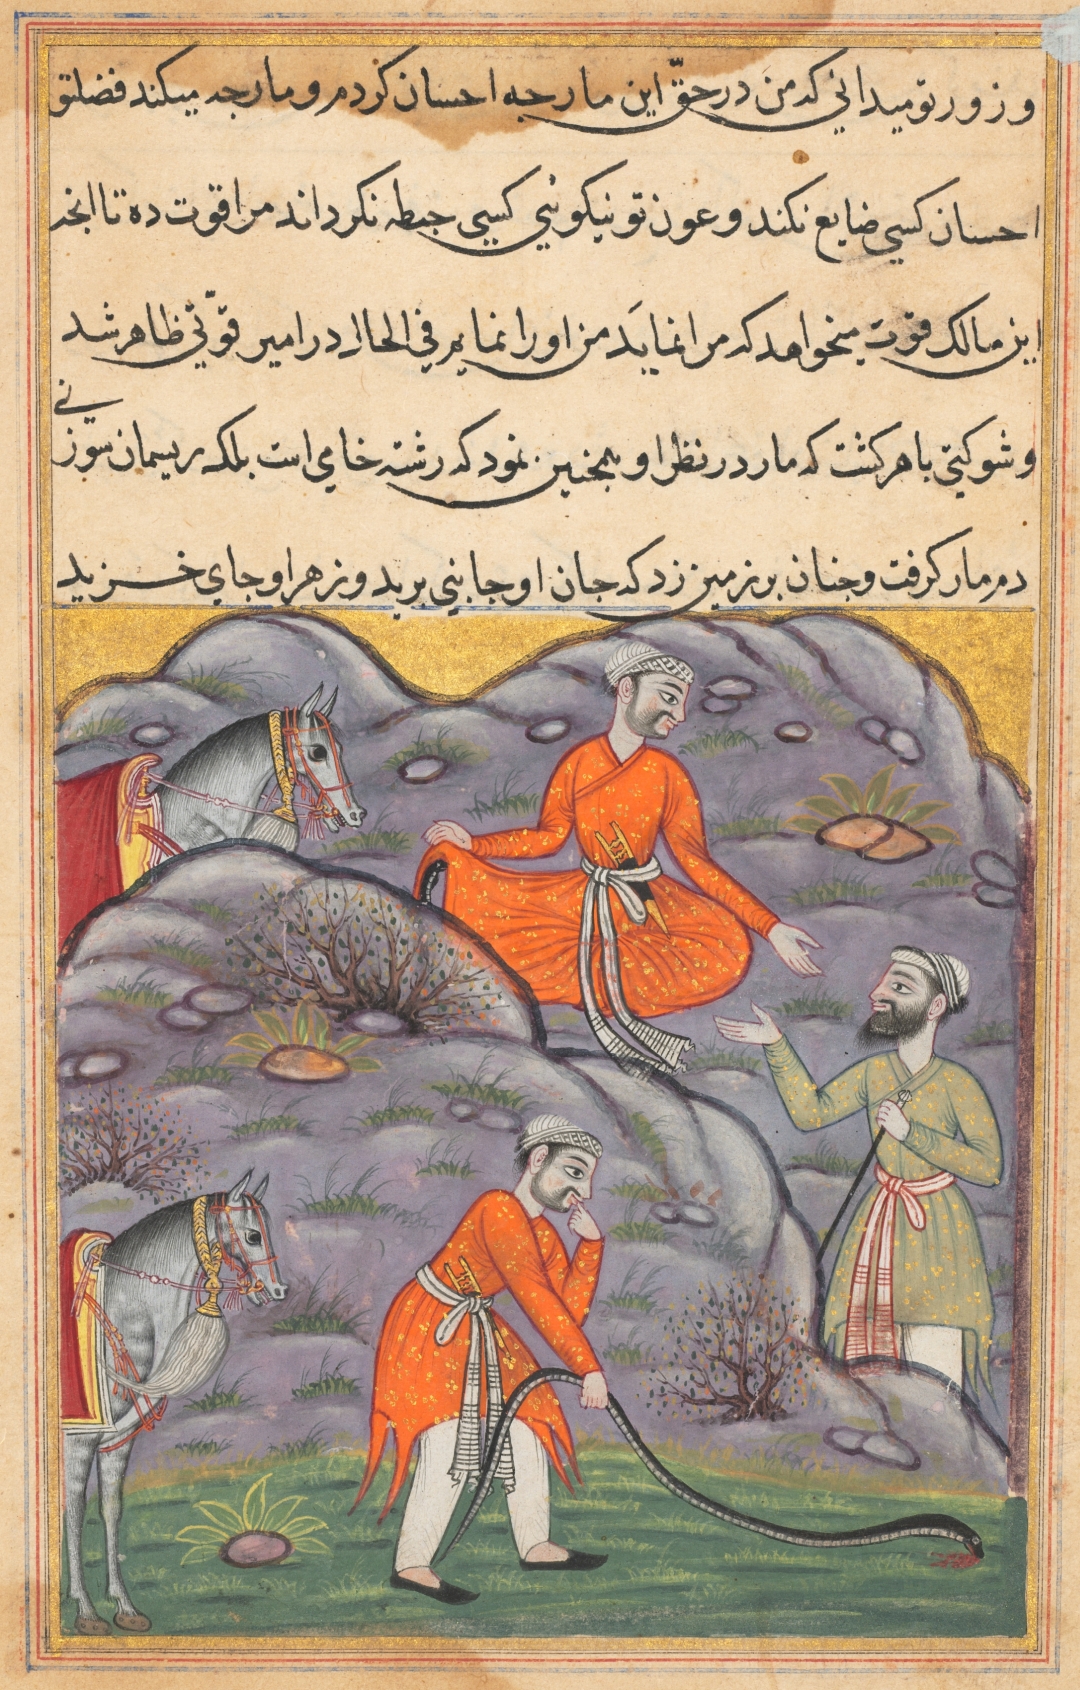 و زور تو میدانی که من در حقّ این مار جه احسان کردم و مار جه میکند فضلتو
احسان کسی ضایع نکند و عون تو نیکوئی کسی حبطه نکرداند مرا قوت ده تا انجه
این مالک قوت میخواهد که مرا نماید من او را نمایم فی الحال در امیر قوّتی ظاهر شد
و شوکتی باهر کشت که مار در نظر او همجنین نمود که رشته خامی است بلکه ریسمان سوزنی
دم مار کرفت و جنان بر زمین زد که جان او جانبی برید و زهر او جای خزید